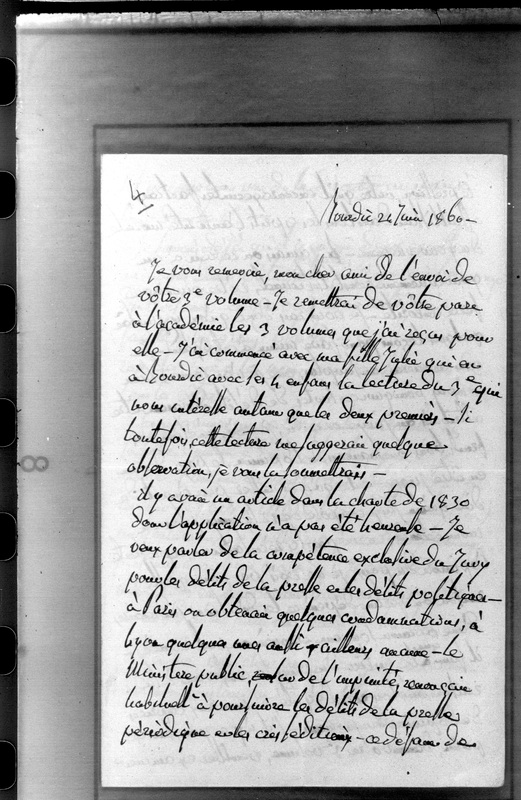 4
24 Juin 1860 —
Je vous remercie, mon cher ami de l'envoi de
vôtre 3e volume — Je remettrai de vôtre part
à l'académie les 3 volumes que j'ai reçus pour
elle — J'ai commencé avec ma fille Julie qui est
à avec ses 4 enfans la lecture du 3e qui
nous intéresse autant que les deux premiers — si
toutefois cette lecture me suggerait quelque
observation, je vous la soumettrais —
il y avait un article dans la charte de 1830
dont l'application n'a pas été heureuse — Je
veux parler de la compétence exclusive du Jury
pour les délits de la presse et les délits politiques —
à Paris on obtenait quelques condamnations, à
Lyon quelques unes aussi ailleurs aucune — le
Ministère public, de l'impunité, renonçait
habituellt à poursuivre les délits de la presse
périodique et les cris séditieux — ce défaut de